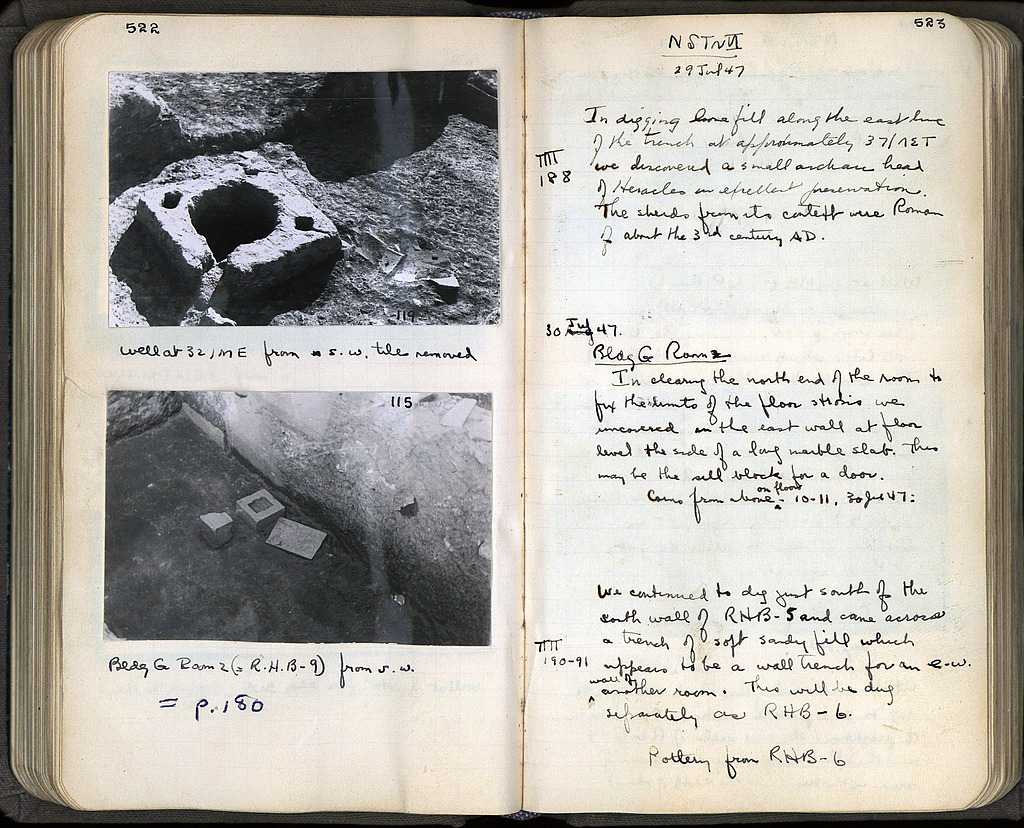 522
119
well at 32/ME from s.w. tile removed
115
Bldg G Room 2 (= R.H.B-9) from s.w.
= p. 180
523
NSTΝ VI
29 Jul 47
In digging loose fill along the east line
of the trench at approximately 37/ΛΣΤ
ΠΠ
188
we discovered a small archaic head
of Heracles in excellent preservation.
The sherds from its context were Roman
of about the 3rd century AD.
30 Jul 47.
Bldg G Room 2
In clearing the north end of the room to
fix the limits of the floor strosis we
uncovered in the east wall at floor
level the side of a long marble slab. This
may be the sill block for a door.
Coins from above, on floor 10-11, 30 Jul 47:
We continued to dig just south of the
south wall of RHB-5 and came across
a trench of soft sandy fill which
ΠΠ
190-91
appears to be a wall trench for an e-w.
wall of another room. This will be dug
separately as RHB-6.
Pottery from RHB-6